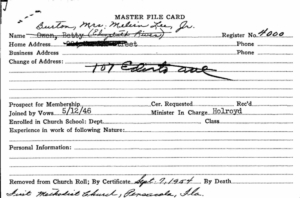 MASTER FILE CARD
Burton, Mrs. Melvin Lee, Jr.
Name Owen, Betty Register No. 4000
Home Address Street Phone
Business Address Phone
Change of Address:
Prospect for Membership Cer. Requested Rec'd
Joined by Vows 5/12/46 Minister In Charge Holroyd
Enrolled in Church School: Dept. Class
Experience in work of following Nature:
Personal Information:
Removed from Church Roll; By Certificate Sept. 7, 1954 By Death
First Methodist Church, Pensacola, Fla.